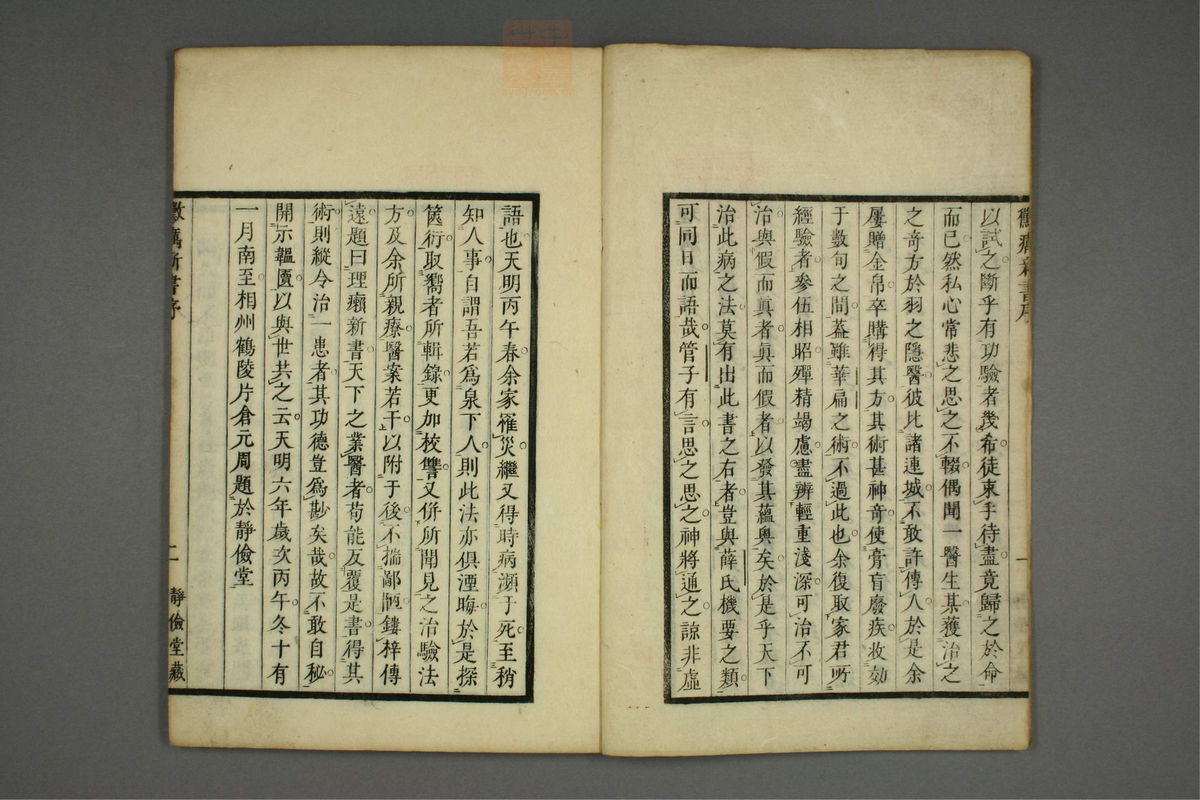 以試之斷乎有功驗者幾希徒束手待盡竟歸之於命
而已然私心常悲之思之不輟偶聞一醫生某獲治之
之奇方於羽之隱醫彼比諸連城不敢許傳人於是余
屢贈金帛卒購得其方其術甚神奇使膏肓廢疾收効
于數旬之間葢雖華扁之術不過此也余復取家君所
經驗者參伍相照殫精竭慮盡辨輕重淺深可治不可
治與假而眞者眞而假者以發其蘊奧矣於是乎天下
治此病之法莫有出此書之右者豈與薛氏機要之類
可同日而語哉管子有言思之思之神將通之諒非虛
語也天明丙午春余家罹災繼又得時病瀕于死至稍
知人事自謂吾若爲泉下人則此法亦俱湮晦於是探
篋衍取嚮者所輯錄更加校讐又併所聞見之治驗法
方及余所親療醫案若干以附于後不揣鄙陋鏤梓傳
遠題曰理癩新書天下之業醫者苟能反覆是書得其
術則縱令治一患者其功德豈爲尠矣哉故不敢自秘
開示韞匵以與世共之云天明六年歲次丙午冬十有
一月南至相州鶴陵片倉元周題於靜儉堂
新書序
二
靜儉堂藏